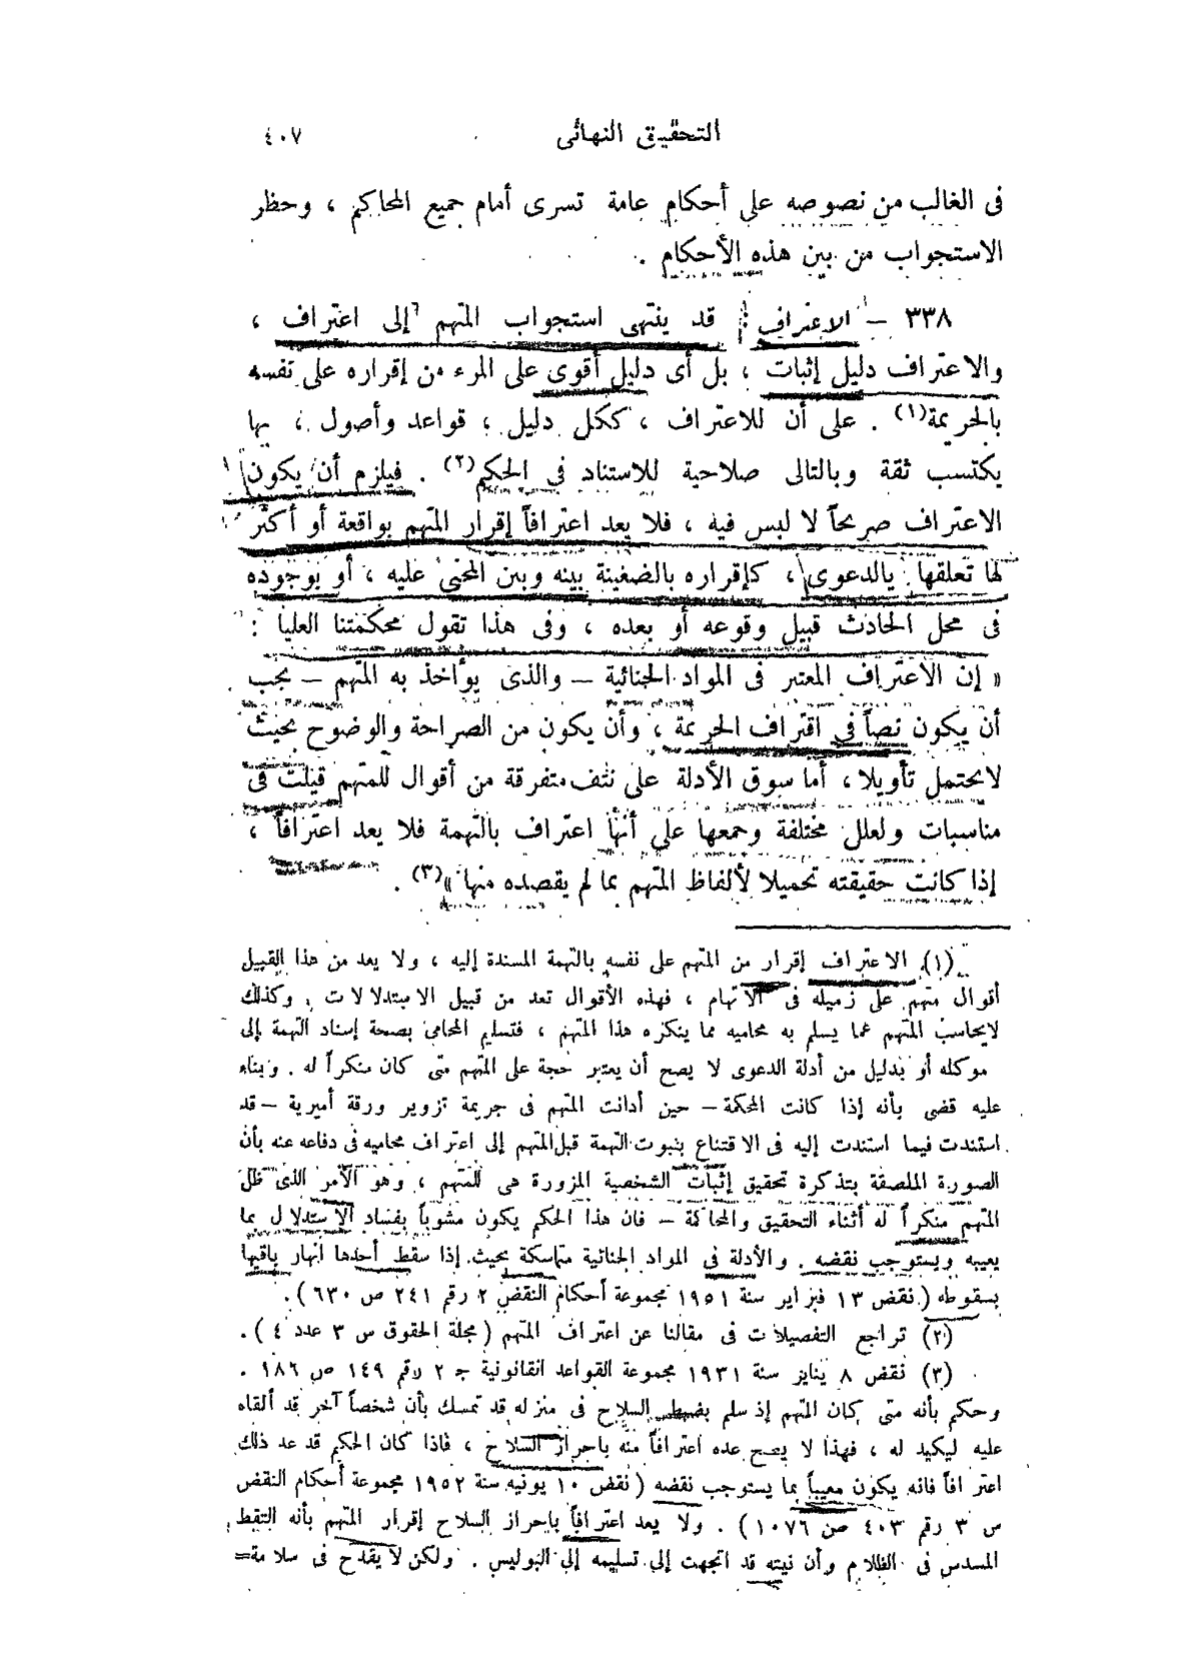 التحقيق النهائى ٤٠٧
فى الغالب من نصوصه على أحكام عامة تسرى أمام جميع المحاكم ، وحظر
الاستجواب من بين هذه الأحكام .
٣٣٨ – الاعتراف : قد ينتهى استجواب المتهم إلى اعتراف ،
والاعتراف دليل إثبات ، بل أى دليل أقوى على المرء من إقراره على نفسه
بالجريمة(١) . على أن للاعتراف ، ككل دليل ، قواعد وأصول ، بها
يكتسب ثقة وبالتالى صلاحية للاستناد فى الحكم(٢) . فيلزم أن يكون
الاعتراف صريحاً لا لبس فيه ، فلا يعد اعترافاً إقرار المتهم بواقعة أو أكثر
لها تعلقها بالدعوى ، كإقراره بالضغينة بينه وبين المجنى عليه ، أو بوجوده
فى محل الحادث قبيل وقوعه أو بعده ، وفى هذا تقول محكمتنا العليا :
« إن الاعتراف المعتبر فى المواد الجنائية – والذى يؤاخذ به المتهم – يجب
أن يكون نصاً فى اقتراف الجريمة ، وأن يكون من الصراحة والوضوح بحيث
لا يحتمل تأويلا ، أما سوق الأدلة على نتف متفرقة من أقوال للمتهم قيلت فى
مناسبات ولعلل مختلفة وجمعها على أنها اعتراف بالتهمة فلا يعد اعترافاً ،
إذا كانت حقيقته تحميلا لألفاظ المتهم بما لم يقصده منها »(٣) .
(١) الاعتراف إقرار من المتهم على نفسه بالتهمة المسندة إليه ، ولا يعد من هذا القبيل
أقوال متهم على زميله فى الاتهام ، فهذه الأقوال تعد من قبيل الاستدلالات . وكذلك
لايحاسب المتهم عما يسلم به محاميه مما ينكره هذا المتهم ، فتسليم المحامى بصحة إسناد التهمة إلى
موكله أو بدليل من أدلة الدعوى لا يصح أن يعتبر حجة على المتهم متى كان منكراً له . وبناء
عليه قضى بأنه إذا كانت المحكمة – حين أدانت المتهم فى جريمة تزوير ورقة أميرية – قد
استندت فيما استندت إليه فى الاقتناع بثبوت التهمة قبل المتهم إلى اعتراف محاميه فى دفاعه عنه بأن
الصورة الملصقة بتذكرة تحقيق إثبات الشخصية المزورة هى للمتهم ، وهو الأمر الذى ظل
المتهم منكراً له أثناء التحقيق والمحاكمة – فان هذا الحكم يكون مشوباً بفساد الاستدلال بما
يعيبه ويستوجب نقضه . والأدلة فى المواد الجنائية متماسكة بحيث إذا سقط أحدها انهار باقيها
بسقوطه ( نقض ١٣ فبراير سنة ١٩٥١ مجموعة أحكام النقض ٢ رقم ٢٤١ ص ٦٣٠ ) .
(٢) تراجع التفصيلات فى مقالنا عن اعتراف المتهم ( مجلة الحقوق س ٣ عدد ٤ ) .
(٣) نقض ٨ يناير سنة ١٩٣١ مجموعة القواعد القانونية ج ٢ رقم ١٤٩ ص ١٨٦ .
وحكم بأنه متى كان المتهم إذ سلم بضبط السلاح فى منزله قد تمسك بأن شخصاً آخر قد ألقاه
عليه ليكيد له ، فهذا لا يصح عده اعترافاً منه باحراز السلاح ، فاذا كان الحكم قد عد ذلك
اعترافاً فانه يكون معيباً بما يستوجب نقضه ( نقض ١٠ يونيه سنة ١٩٥٢ مجموعة أحكام النقض
س ٣ رقم ٤٠٣ ص ١٠٧٦ ) . ولا يعد اعترافاً باحراز السلاح إقرار المتهم بأنه التقط
المسدس فى الظلام وأن نيته قد اتجهت إلى تسليمه إلى البوليس . ولكن لا يقدح فى سلامة=